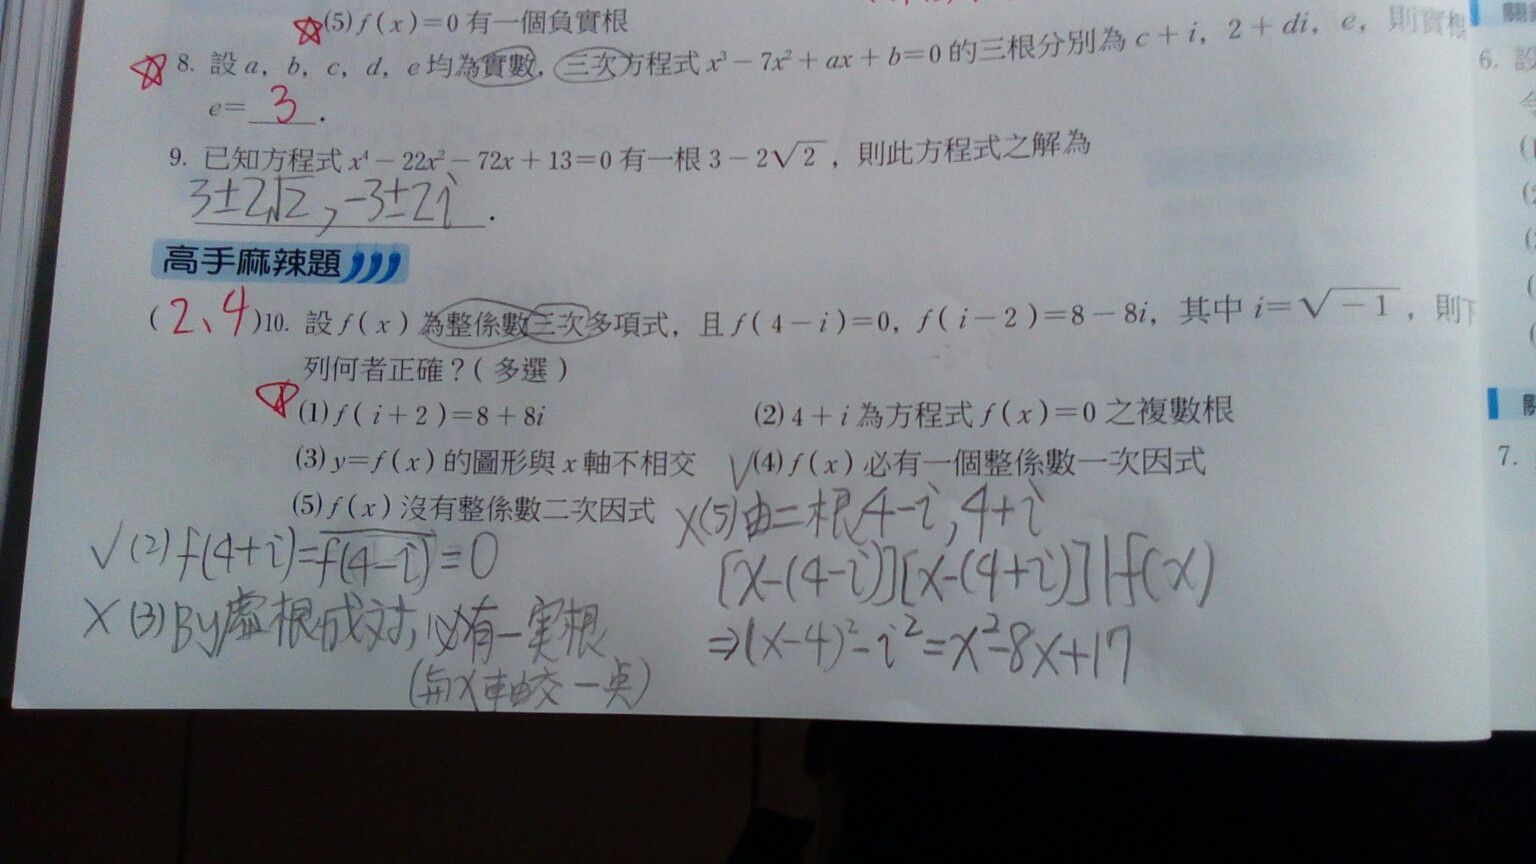 (5) f(x)=0 有一個負實根
8. 設 a, b, c, d, e 均為實數, 三次方程式 x³-7x²+ax+b=0 的三根分別為 c+i, 2+di, e, 則實根
e= 3 .
9. 已知方程式 x⁴-22x²-72x+13=0 有一根 3-2√2, 則此方程式之解為
3±2√2, -3±2i .
高手麻辣題
(2、4)10. 設 f(x) 為整係數三次多項式, 且 f(4-i)=0, f(i-2)=8-8i, 其中 i=√-1, 則下
列何者正確?(多選)
(1) f(i+2)=8+8i (2) 4+i 為方程式 f(x)=0 之複數根
(3) y=f(x) 的圖形與 x 軸不相交 √(4) f(x) 必有一個整係數一次因式
(5) f(x) 沒有整係數二次因式
√(2) f(4+i)=f(4-i)=0
X(3) By虛根成对, 必有一実根
(與X軸交一点)
X(5) 由二根4-i, 4+i
[x-(4-i)][x-(4+i)]|f(x)
⇒(x-4)²-i²=x²-8x+17
6. 設
7.